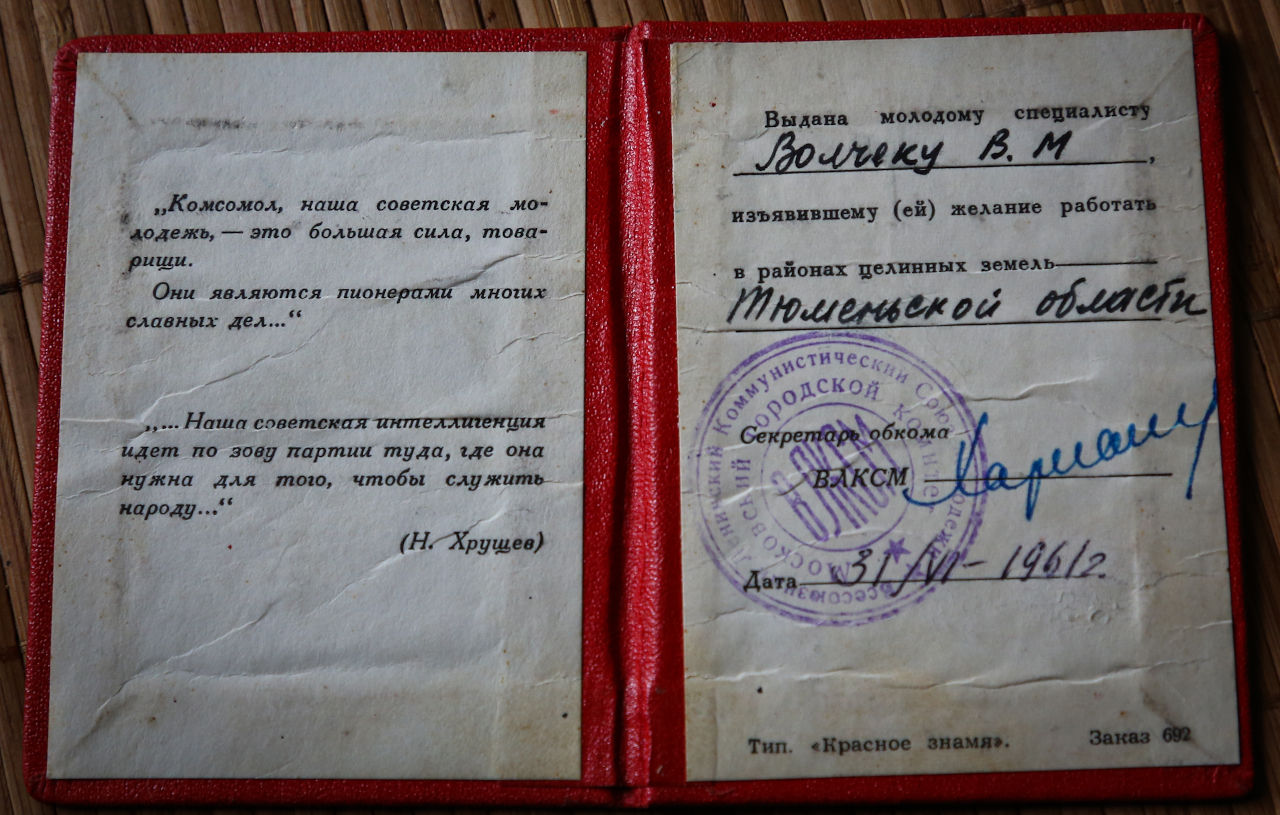 „Комсомол, наша советская мо-
лодежь, — это большая сила, това-
рищи.
Они являются пионерами многих
славных дел...“
„...Наша советская интеллигенция
идет по зову партии туда, где она
нужна для того, чтобы служить
народу...“
(Н. Хрущев)
Выдана молодому специалисту
Волчеку В. М,
изъявившему (ей) желание работать
в районах целинных земель
Тюменьской области
Ленинский Коммунистический Союз
Московский городской комитет
ВЛКСМ
Секретарь обкома
ВЛКСМ
Дата 31/VI-1961г.
Тип. «Красное знамя». Заказ 692